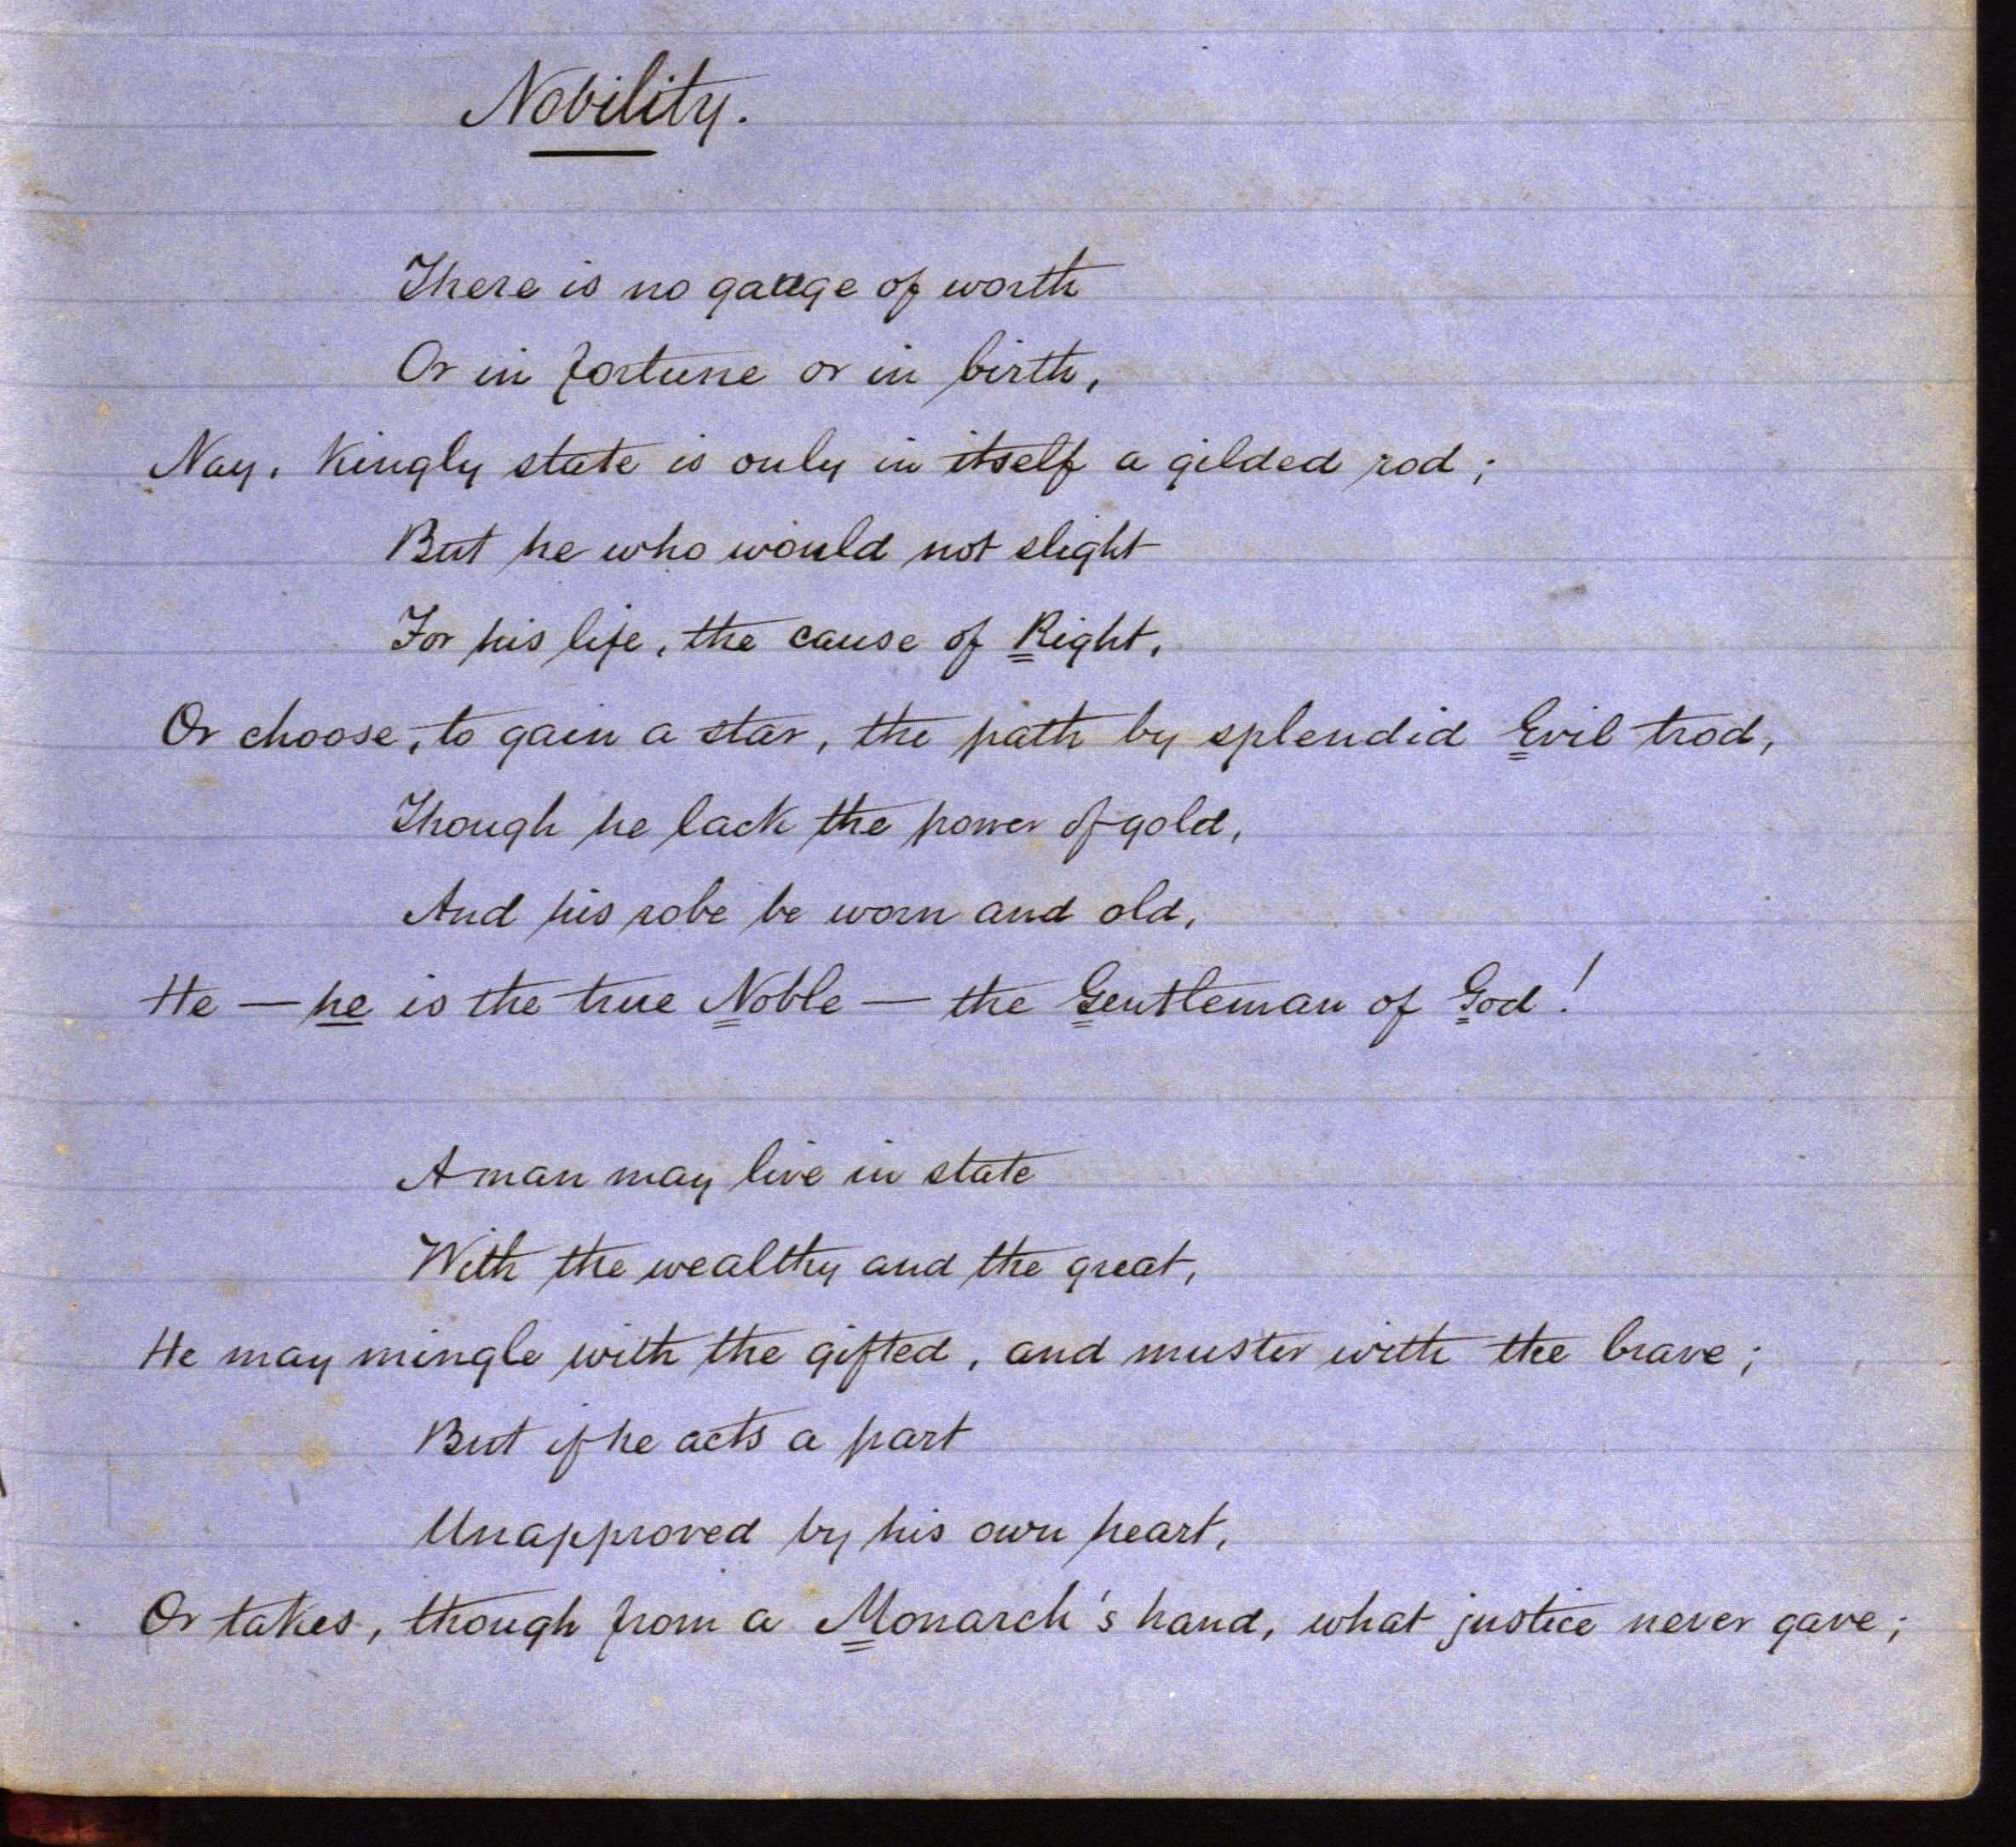 Nobility.
There is no gauge of worth
Or in fortune or in birth,
Nay, Kingly state is only in itself a gilded rod;
But he who would not slight
For his life, the cause of Right,
Or choose, to gain a star, the path by splendid Evil trod,
Though he lack the power of gold,
And his robe be worn and old,
He — he is the true Noble — the Gentleman of God!
A man may live in state
With the wealthy and the great,
He may mingle with the gifted, and muster with the brave;
But if he acts a part
Unapproved by his own heart,
Or takes, though from a Monarch's hand, what justice never gave;